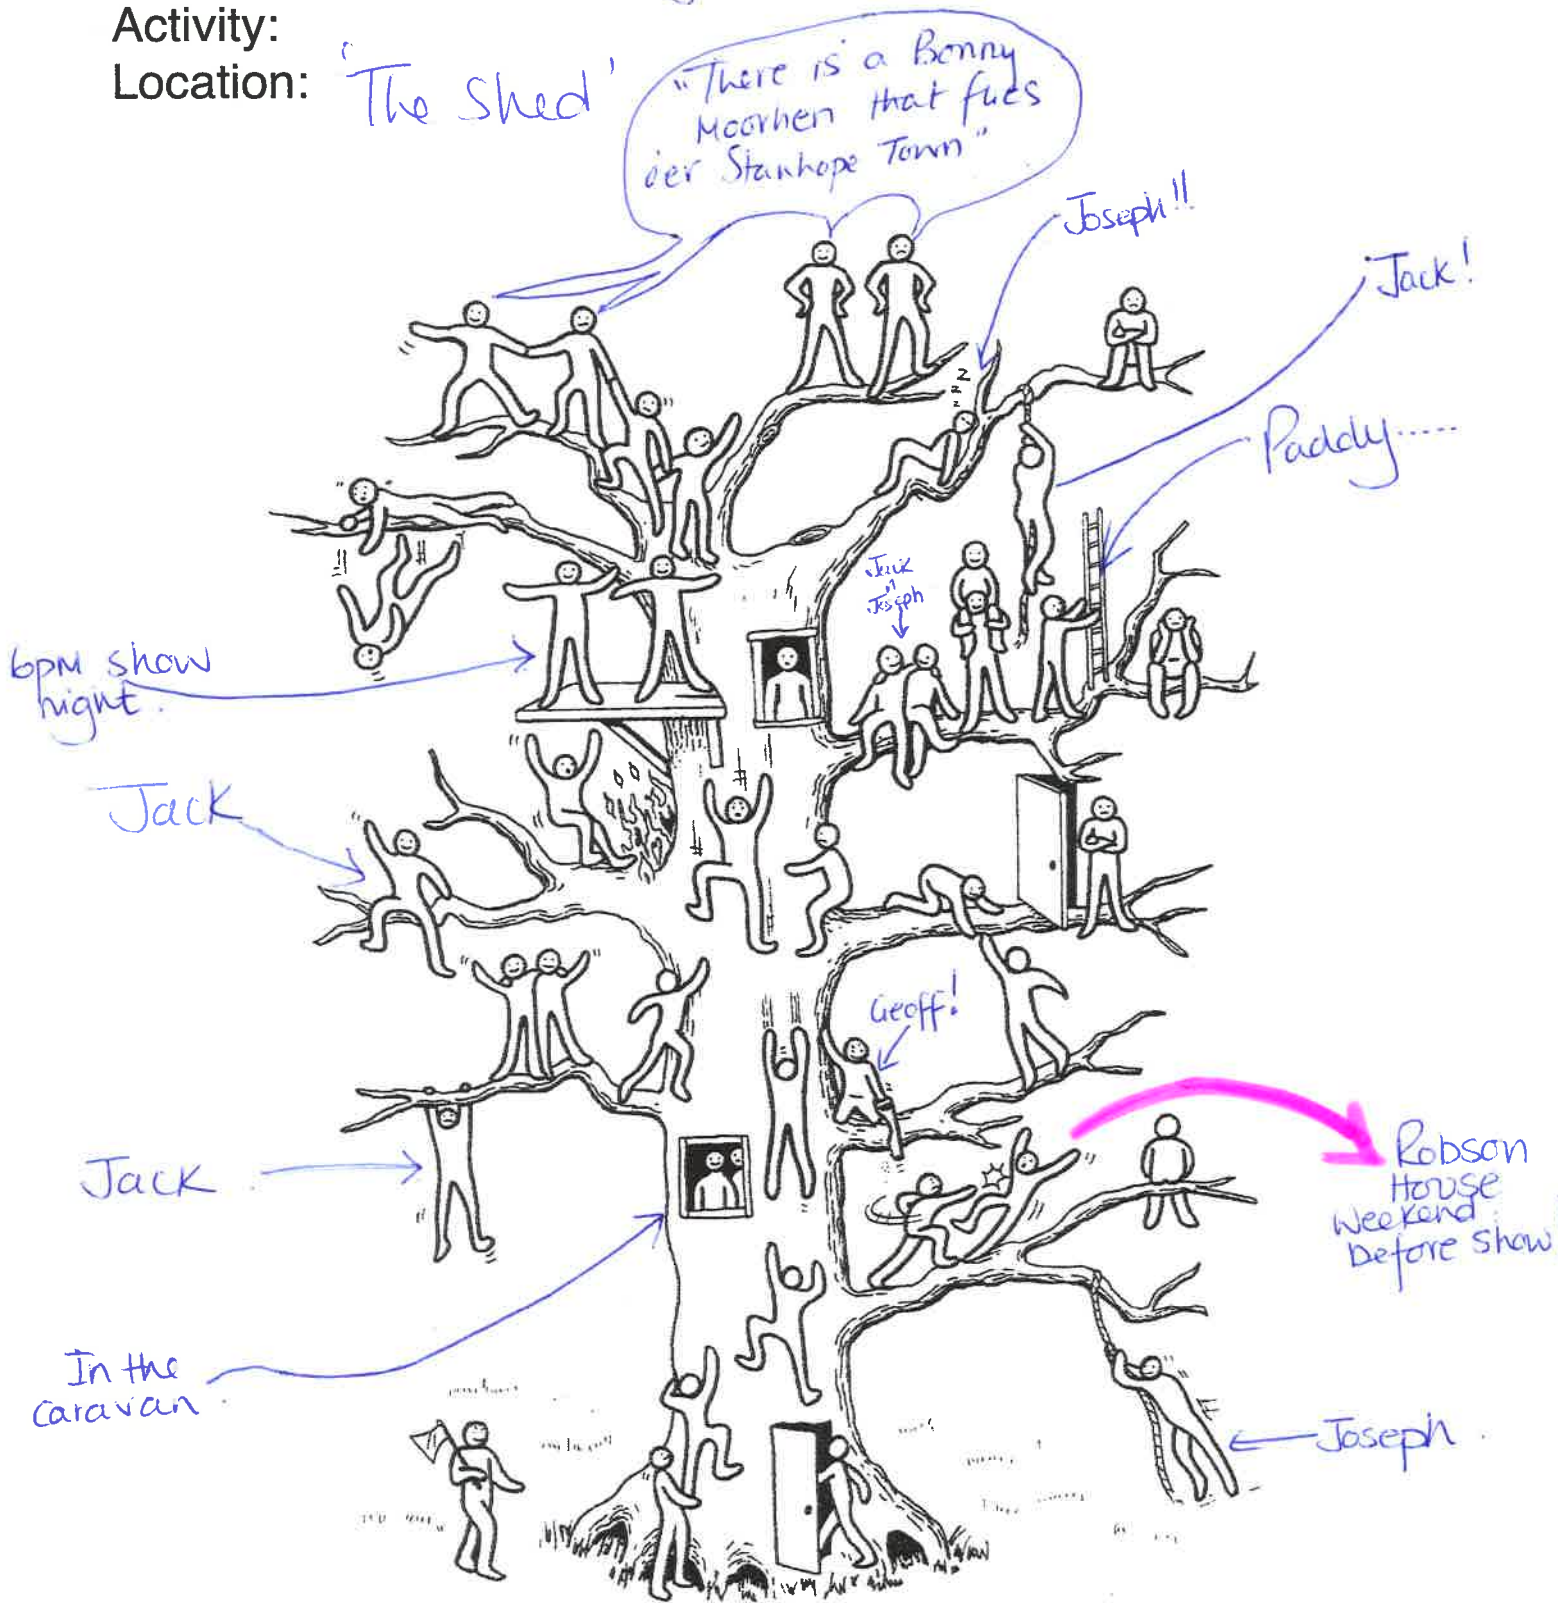 Activity:
Location: 'The Shed'
"There is a Bonny
Moorhen that flies
o'er Stanhope Town"
Joseph!!
Jack!
Paddy.....
z
z
z
Jack
n
Joseph
6pm show
night.
Jack
Geoff!
Jack.
Robson
House
Weekend
Before Show
In the
caravan.
Joseph.